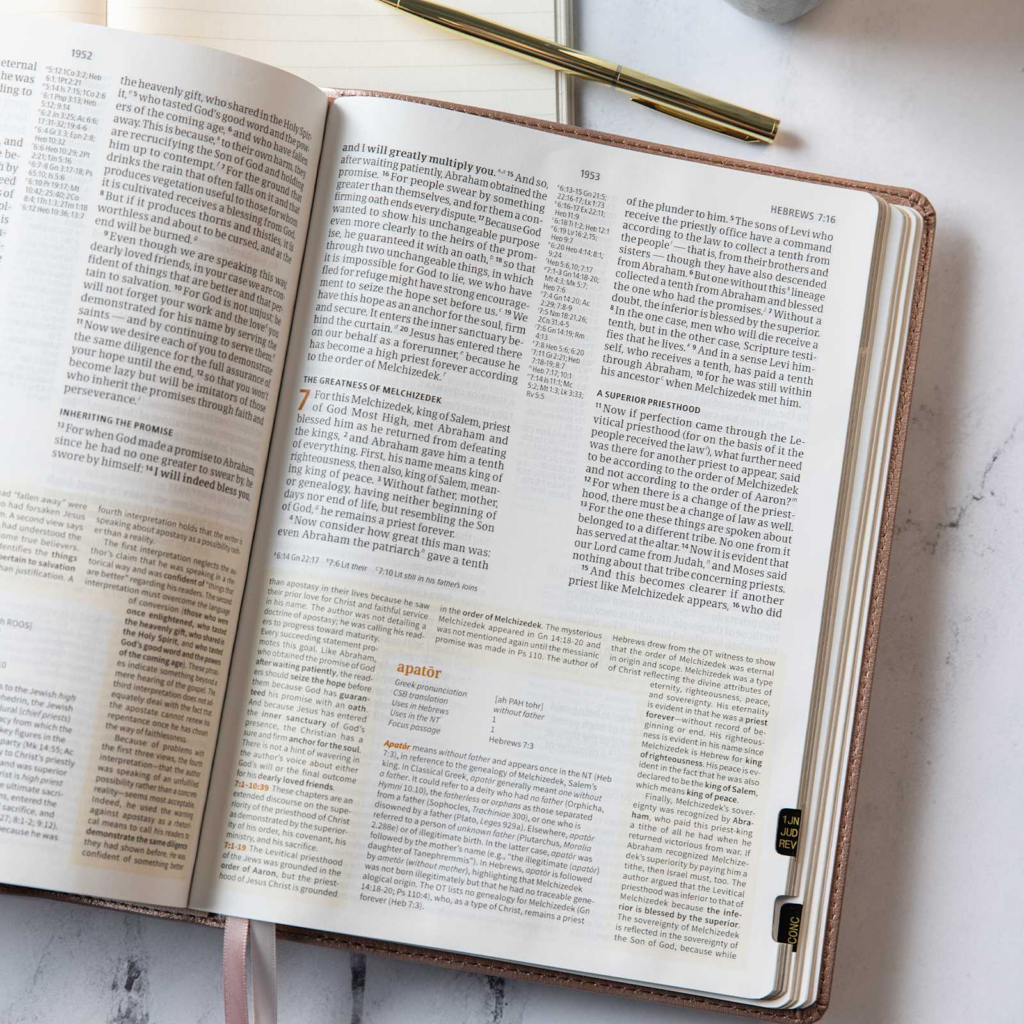 1952
eternal
he was
ding to
the heavenly gift, who shared in the Holy Spir-
it, who tasted God's good word and the pow-
ers of the coming age, 6 and who have fallen
away. This is because, to their own harm, they
are recrucifying the Son of God and holding
him up to contempt. 7 For the ground that
drinks the rain that often falls on it and that
produces vegetation useful to those for whom
it is cultivated receives a blessing from God.
8 But if it produces thorns and thistles, it is
worthless and about to be cursed, and at the
end will be burned.
9 Even though we are speaking this way,
dearly loved friends, in your case we are con-
fident of things that are better and that per-
tain to salvation. 10 For God is not unjust; he
will not forget your work and the love you
demonstrated for his name by serving the
saints — and by continuing to serve them.
11 Now we desire each of you to demonstrate
the same diligence for the full assurance of
your hope until the end, 12 so that you won't
become lazy but will be imitators of those
who inherit the promises through faith and
perseverance.
INHERITING THE PROMISE
13 For when God made a promise to Abraham,
since he had no one greater to swear by, he
swore by himself: 14 I will indeed bless you,
fourth interpretation holds that the writer is
speaking about apostasy as a possibility rath-
er than a reality.
The first interpretation neglects the au-
thor's claim that he was speaking in a rhe-
torical way and was confident of "things that
are better" regarding his readers. The second
interpretation must overcome the language
of conversion (those who were
once enlightened, who tasted
the heavenly gift, who shared in
the Holy Spirit, and who tasted
God's good word and the powers
of the coming age). These phras-
es indicate something beyond a
mere hearing of the gospel. The
third interpretation does not ad-
equately deal with the fact that
the apostate cannot renew to
repentance once he has chosen
the way of faithlessness.
Because of problems with
the first three views, the fourth
interpretation—that the author
was speaking of an unfulfilled
possibility rather than a concrete
reality—seems most acceptable.
Indeed, he used the warning
against apostasy as a rhetori-
cal means to call his readers to
demonstrate the same diligence
they had shown before. He was
confident of something better
1953
HEBREWS 7:16
and I will greatly multiply you. 15 And so,
after waiting patiently, Abraham obtained the
promise. 16 For people swear by something
greater than themselves, and for them a con-
firming oath ends every dispute. 17 Because God
wanted to show his unchangeable purpose
even more clearly to the heirs of the prom-
ise, he guaranteed it with an oath, 18 so that
through two unchangeable things, in which
it is impossible for God to lie, we who have
fled for refuge might have strong encourage-
ment to seize the hope set before us. 19 We
have this hope as an anchor for the soul, firm
and secure. It enters the inner sanctuary be-
hind the curtain. 20 Jesus has entered there
on our behalf as a forerunner, because he
has become a high priest forever according
to the order of Melchizedek.
THE GREATNESS OF MELCHIZEDEK
7 For this Melchizedek, king of Salem, priest
of God Most High, met Abraham and
blessed him as he returned from defeating
the kings, 2 and Abraham gave him a tenth
of everything. First, his name means king of
righteousness, then also, king of Salem, mean-
ing king of peace. 3 Without father, mother,
or genealogy, having neither beginning of
days nor end of life, but resembling the Son
of God, he remains a priest forever.
4 Now consider how great this man was:
even Abraham the patriarch gave a tenth
of the plunder to him. 5 The sons of Levi who
receive the priestly office have a command
according to the law to collect a tenth from
the people — that is, from their brothers and
sisters — though they have also descended
from Abraham. 6 But one without this lineage
collected a tenth from Abraham and blessed
the one who had the promises. 7 Without a
doubt, the inferior is blessed by the superior.
8 In the one case, men who will die receive a
tenth, but in the other case, Scripture testi-
fies that he lives. 9 And in a sense Levi him-
self, who receives a tenth, has paid a tenth
through Abraham, 10 for he was still within
his ancestor when Melchizedek met him.
A SUPERIOR PRIESTHOOD
11 Now if perfection came through the Le-
vitical priesthood (for on the basis of it the
people received the law), what further need
was there for another priest to appear, said
to be according to the order of Melchizedek
and not according to the order of Aaron?
12 For when there is a change of the priest-
hood, there must be a change of law as well.
13 For the one these things are spoken about
belonged to a different tribe. No one from it
has served at the altar. 14 Now it is evident that
our Lord came from Judah, and Moses said
nothing about that tribe concerning priests.
15 And this becomes clearer if another
priest like Melchizedek appears, 16 who did
6:14 Gn 22:17 7:6 Lit their 7:10 Lit still in his father's loins
than apostasy in their lives because he saw
their prior love for Christ and faithful service
in his name. The author was not detailing a
doctrine of apostasy; he was calling his read-
ers to progress toward maturity.
Every succeeding statement pro-
motes this goal. Like Abraham,
who obtained the promise of God
after waiting patiently, the read-
ers should seize the hope before
them because God has guaran-
teed his promise with an oath.
And because Jesus has entered
the inner sanctuary of God's
presence, the Christian has a
sure and firm anchor for the soul.
There is not a hint of wavering in
the author's voice about either
God's will or the final outcome
for his dearly loved friends.
7:1-10:39 These chapters are an
extended discourse on the supe-
riority of the priesthood of Christ
as demonstrated by the superior-
ity of his order, his covenant, his
ministry, and his sacrifice.
7:1-19 The Levitical priesthood
of the Jews was grounded in the
order of Aaron, but the priest-
hood of Jesus Christ is grounded
in the order of Melchizedek. The mysterious
Melchizedek appeared in Gn 14:18-20 and
was not mentioned again until the messianic
promise was made in Ps 110. The author of
Hebrews drew from the OT witness to show
that the order of Melchizedek was eternal
in origin and scope. Melchizedek was a type
of Christ reflecting the divine attributes of
eternity, righteousness, peace,
and sovereignty. His eternality
is evident in that he was a priest
forever—without record of be-
ginning or end. His righteous-
ness is evident in his name since
Melchizedek is Hebrew for king
of righteousness. His peace is ev-
ident in the fact that he was also
declared to be the king of Salem,
which means king of peace.
Finally, Melchizedek's sover-
eignty was recognized by Abra-
ham, who paid this priest-king
a tithe of all he had when he
returned victorious from war. If
Abraham recognized Melchize-
dek's superiority by paying him a
tithe, then Israel must, too. The
author argued that the Levitical
priesthood was inferior to that of
Melchizedek because the infe-
rior is blessed by the superior.
The sovereignty of Melchizedek
is reflected in the sovereignty of
the Son of God, because while
apatōr
Greek pronunciation [ah PAH tohr]
CSB translation without father
Uses in Hebrews 1
Uses in the NT 1
Focus passage Hebrews 7:3
Apatōr means without father and appears once in the NT (Heb
7:3), in reference to the genealogy of Melchizedek, Salem's
king. In Classical Greek, apatōr generally meant one without
a father. It could refer to a deity who had no father (Orphica,
Hymni 10.10), the fatherless or orphans as those separated
from a father (Sophocles, Trachiniae 300), or one who is
disowned by a father (Plato, Leges 929a). Elsewhere, apatōr
referred to a person of unknown father (Plutarchus, Moralia
2.288e) or of illegitimate birth. In the latter case, apatōr was
followed by the mother's name (e.g., "the illegitimate (apatōr)
daughter of Tanephremmis"). In Hebrews, apatōr is followed
by ametōr (without mother), highlighting that Melchizedek
was not born illegitimately but that he had no traceable gene-
alogical origin. The OT lists no genealogy for Melchizedek (Gn
14:18-20; Ps 110:4), who, as a type of Christ, remains a priest
forever (Heb 7:3).
1JN
JUD
REV
CONC